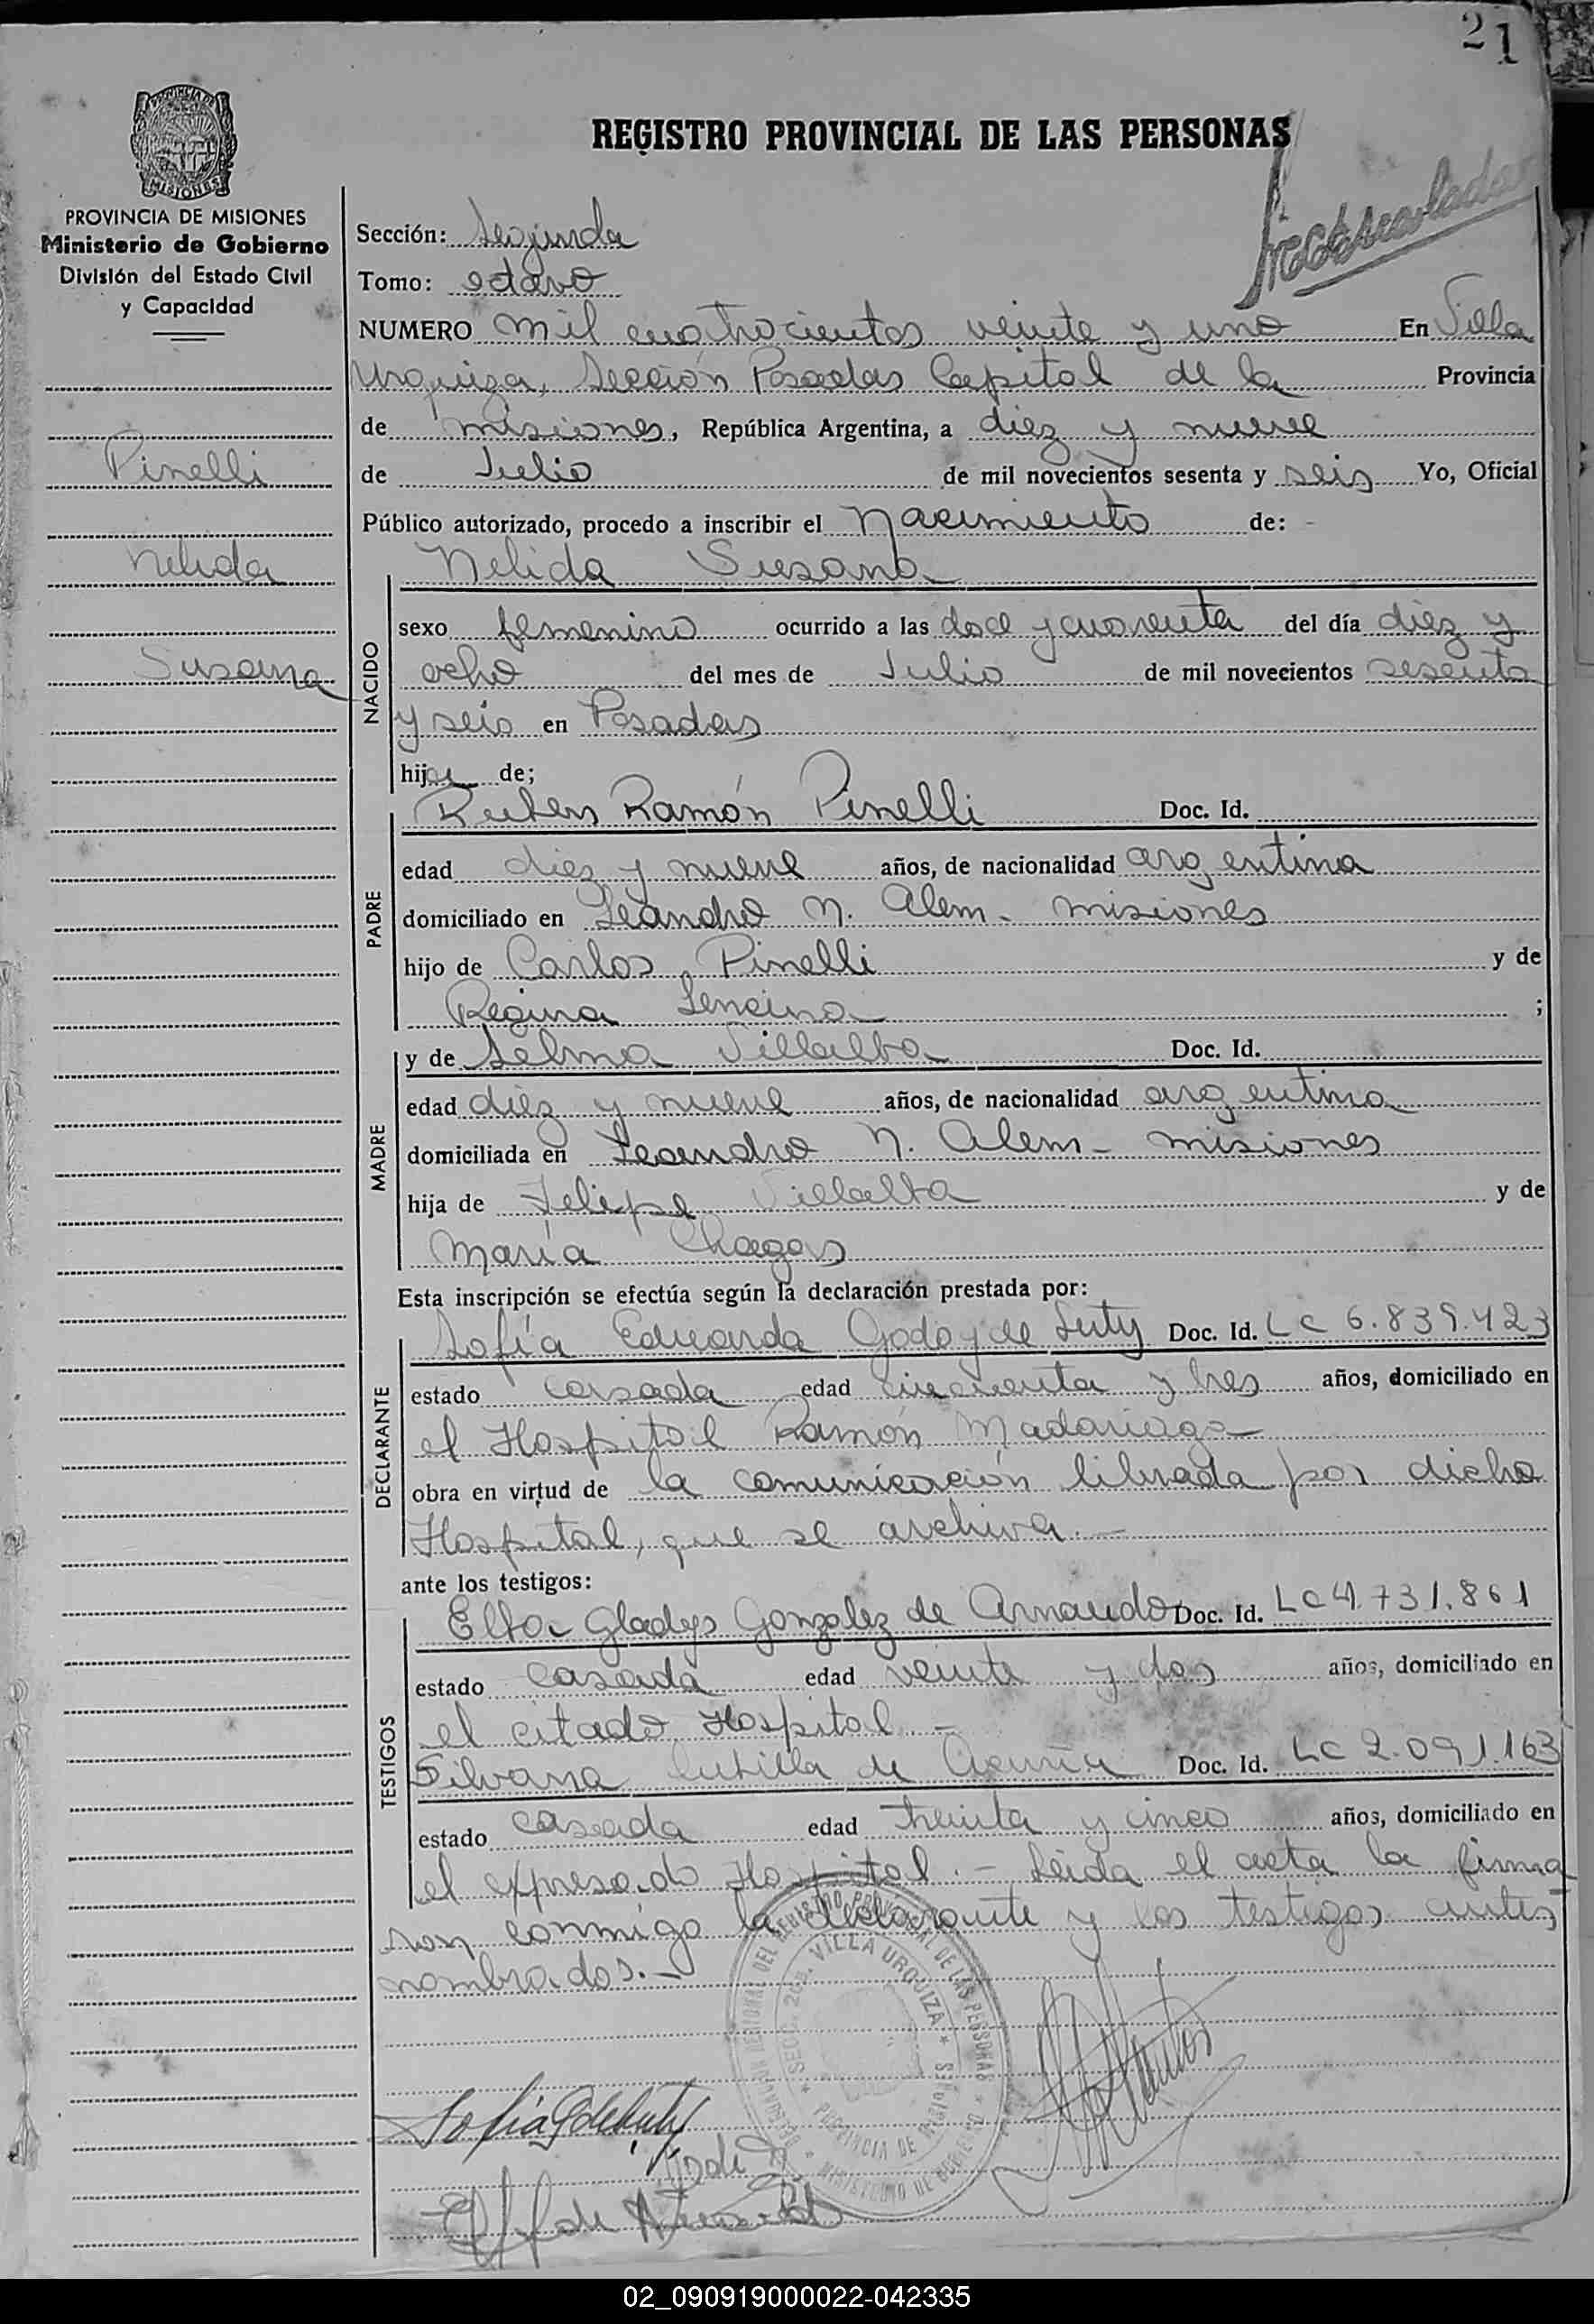 21
REGISTRO PROVINCIAL DE LAS PERSONAS
PROVINCIA DE MISIONES
Ministerio de Gobierno
División del Estado Civil
y Capacidad
Pinelli
Nelida
Susana
Sección: Segunda
Tomo: octavo
NUMERO mil cuatrocientos veinte y uno En Villa
Urquiza, Sección Posadas Capital de la Provincia
de misiones, República Argentina, a diez y nueve
de Julio de mil novecientos sesenta y seis Yo, Oficial
Público autorizado, procedo a inscribir el Nacimiento de:
Nelida Susana
NACIDO
sexo femenino ocurrido a las doce y cuarenta del día diez y
ocho del mes de Julio de mil novecientos sesenta
y seis en Posadas
hija de;
Ruben Ramón Pinelli Doc. Id.
PADRE
edad diez y nueve años, de nacionalidad argentina
domiciliado en Leandro N. Alem - misiones
hijo de Carlos Pinelli y de
Regina Lencina ;
y de Selma Villalba Doc. Id.
MADRE
edad diez y nueve años, de nacionalidad argentina
domiciliada en Leandro N. Alem - misiones
hija de Felipe Villalba y de
María Chagas
Esta inscripción se efectúa según la declaración prestada por:
Sofía Eduarda Godoy de Luty Doc. Id. LC 6.839.423
DECLARANTE
estado casada edad cincuenta y tres años, domiciliado en
el Hospital Ramón Madariaga
obra en virtud de la comunicación librada por dicho
Hospital, que se archiva.-
ante los testigos:
Elba Gladys Gonzalez de Arnaudo Doc. Id. LC 4.731.861
TESTIGOS
estado casada edad veinte y dos años, domiciliado en
el citado Hospital -
Silvana de Acuña Doc. Id. LC 2.091.163
estado casada edad treinta y cinco años, domiciliado en
el expresado Hospital.- Leida el acta la firma
ron conmigo la declarante y los testigos antes
nombrados.-
DEL REGISTRO PROVINCIAL DE LAS PERSONAS
SECC. 2da. VILLA URQUIZA * MISIONES
PROVINCIA DE
MINISTERIO DE GOBIERNO
02_090919000022-042335